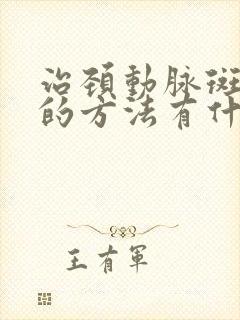 治頚動脈斑
的方法有什
王有軍